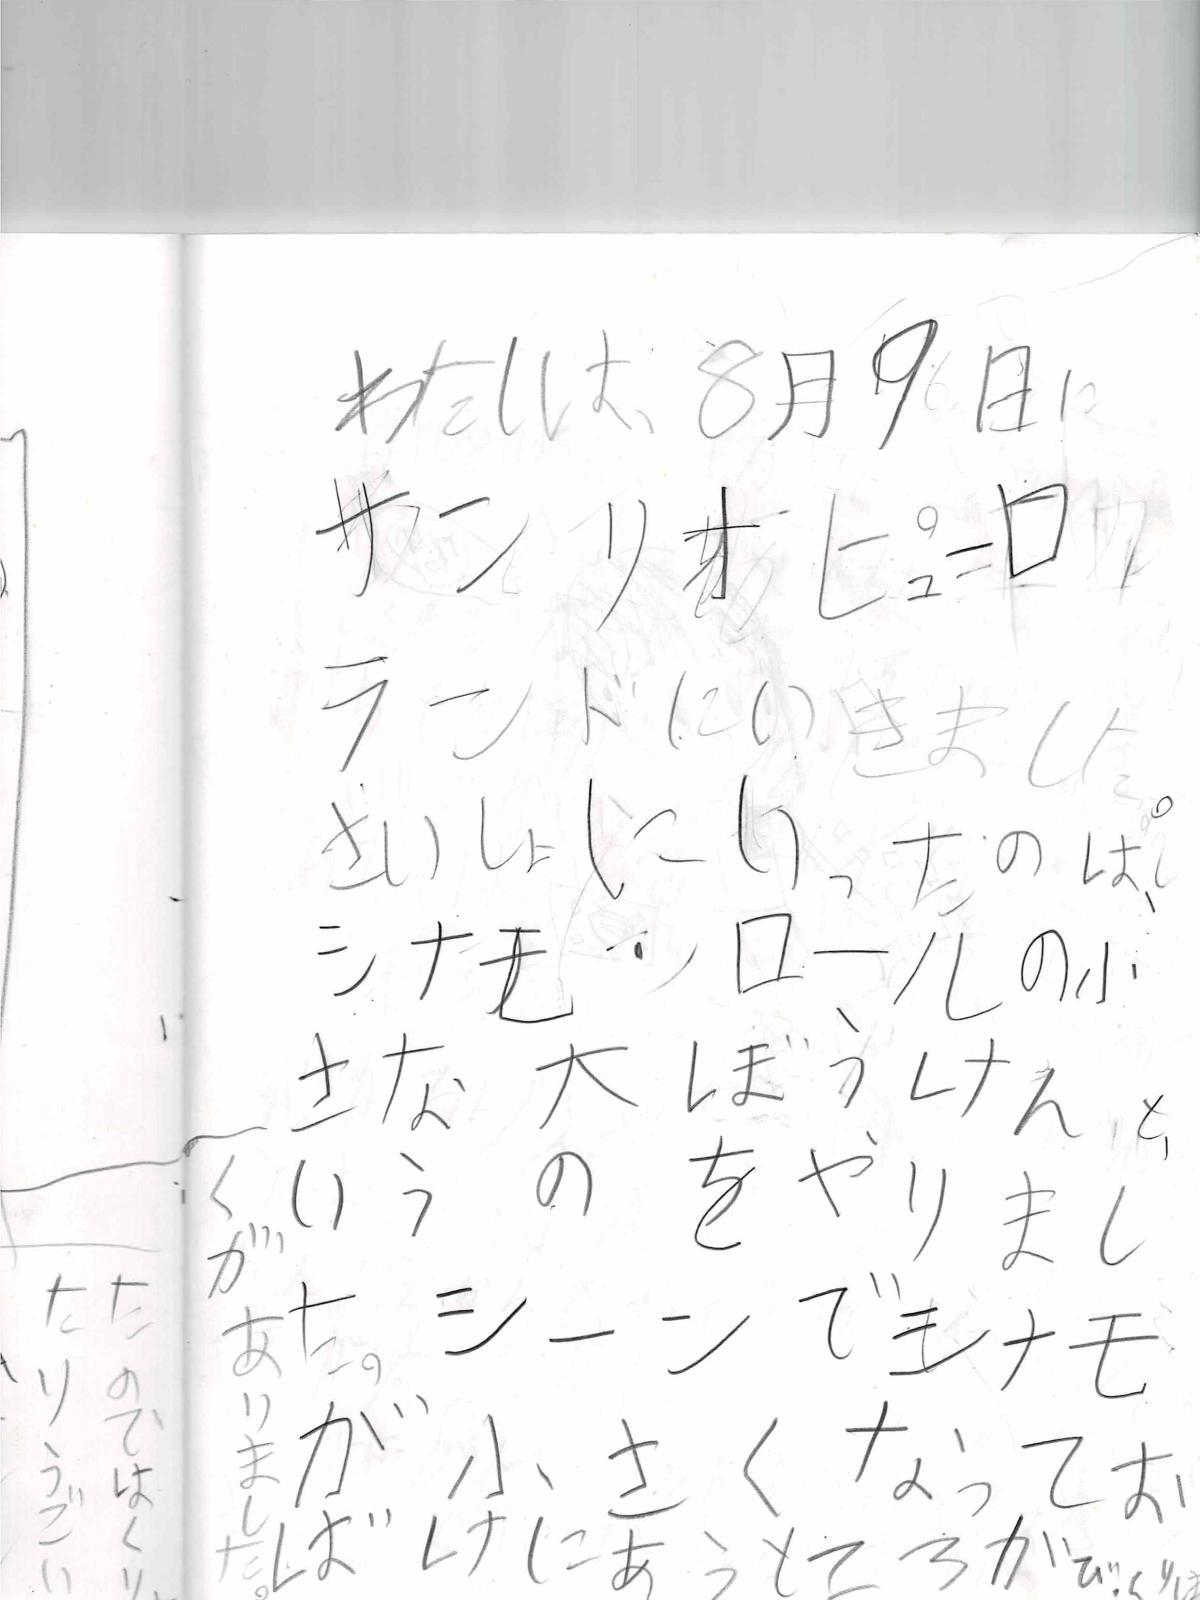 わたしは、8月9日に
サンリオピューロ
ランドにいきました。
さいしょにいったのは、
シナモンロールの小
さな大ぼうけんと
いうのをやりまし
た。シーンでシナモ
が小さくなってお
ばけにあうところがび
くがありました。
たのではくり
たりうごい